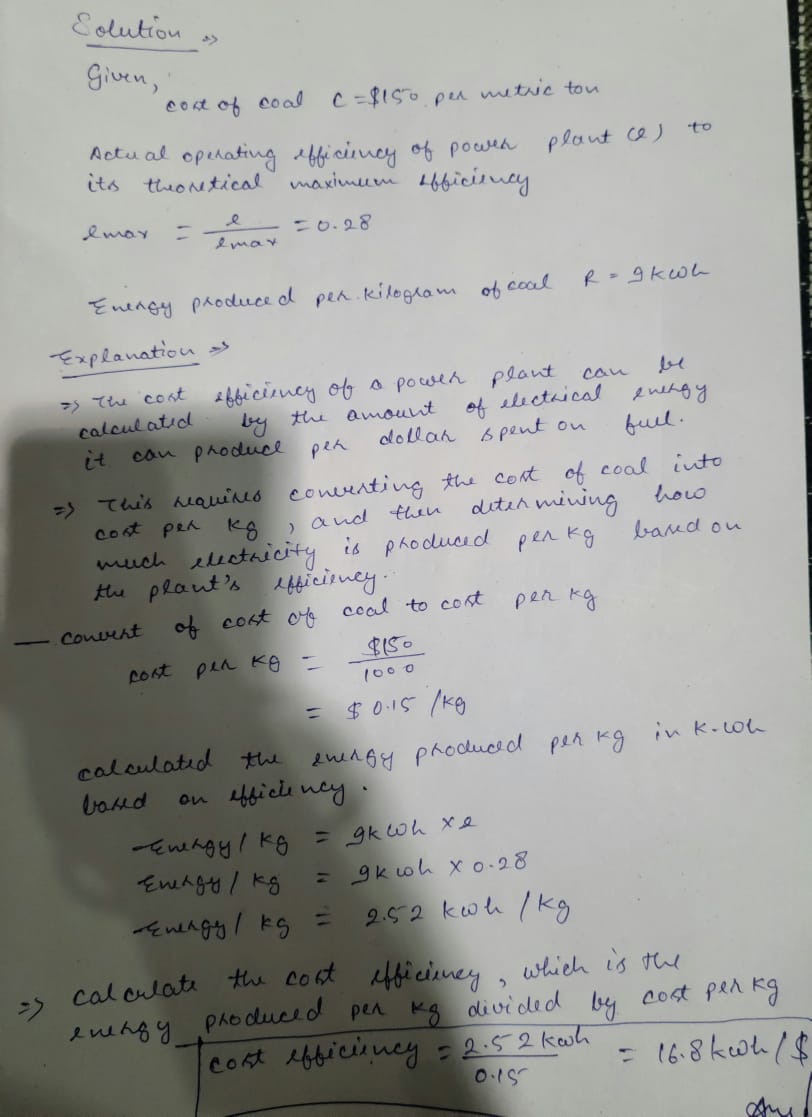 Solution =>
Given,
cost of coal C = $150 per metric ton
Actual operating efficiency of power plant (e) to
its theoretical maximum efficiency
emax = e / emax = 0.28
Energy produced per kilogram of coal R = 9kwh
Explanation =>
=> The cost efficiency of a power plant can be
calculated by the amount of electrical energy
it can produce per dollar spent on fuel.
=> This requires converting the cost of coal into
cost per kg, and then determining how
much electricity is produced per kg based on
the plant's efficiency.
— convert of cost of coal to cost per kg
cost per kg = $150 / 1000
= $0.15 /kg
calculated the energy produced per kg in k.wh
based on efficiency.
- Energy / kg = 9kwh x e
Energy / kg = 9kwh x 0.28
- Energy / kg = 2.52 kwh /kg
=> calculate the cost efficiency, which is the
energy produced per kg divided by cost per kg
cost efficiency = 2.52 kwh / 0.15 = 16.8 kwh / $
Ans